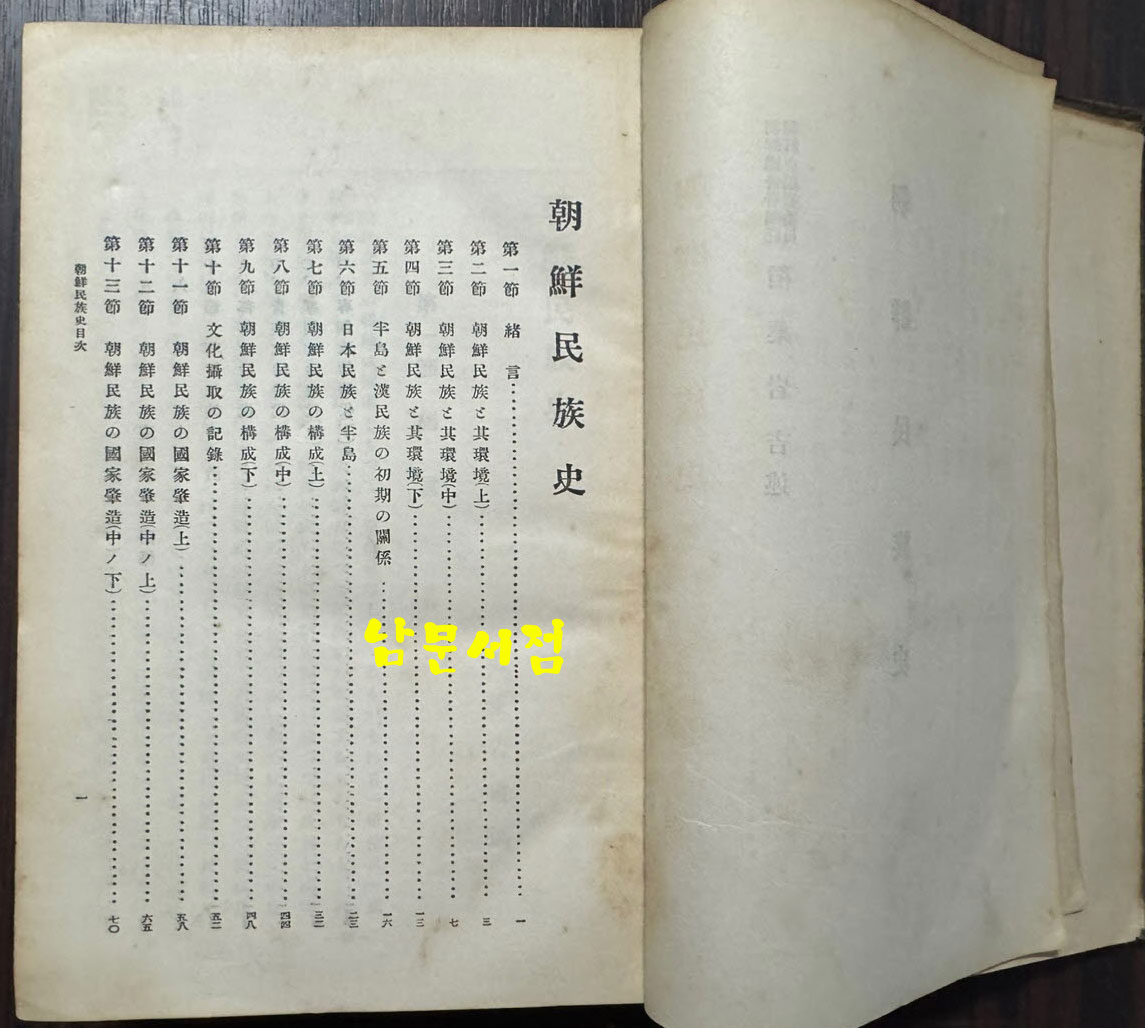 朝鮮民族史
第一節 緒言……………一
第二節 朝鮮民族と其環境(上)……………三
第三節 朝鮮民族と其環境(中)……………七
第四節 朝鮮民族と其環境(下)……………一三
第五節 半島と漢民族の初期の關係……………一六
第六節 日本民族と半島……………二三
第七節 朝鮮民族の構成(上)……………三二
第八節 朝鮮民族の構成(中)……………四四
第九節 朝鮮民族の構成(下)……………四八
第十節 文化攝取の記錄……………五二
第十一節 朝鮮民族の國家肇造(上)……………五八
第十二節 朝鮮民族の國家肇造(中ノ上)……………六五
第十三節 朝鮮民族の國家肇造(中ノ下)……………七〇
朝鮮民族史目次
一
남문서점